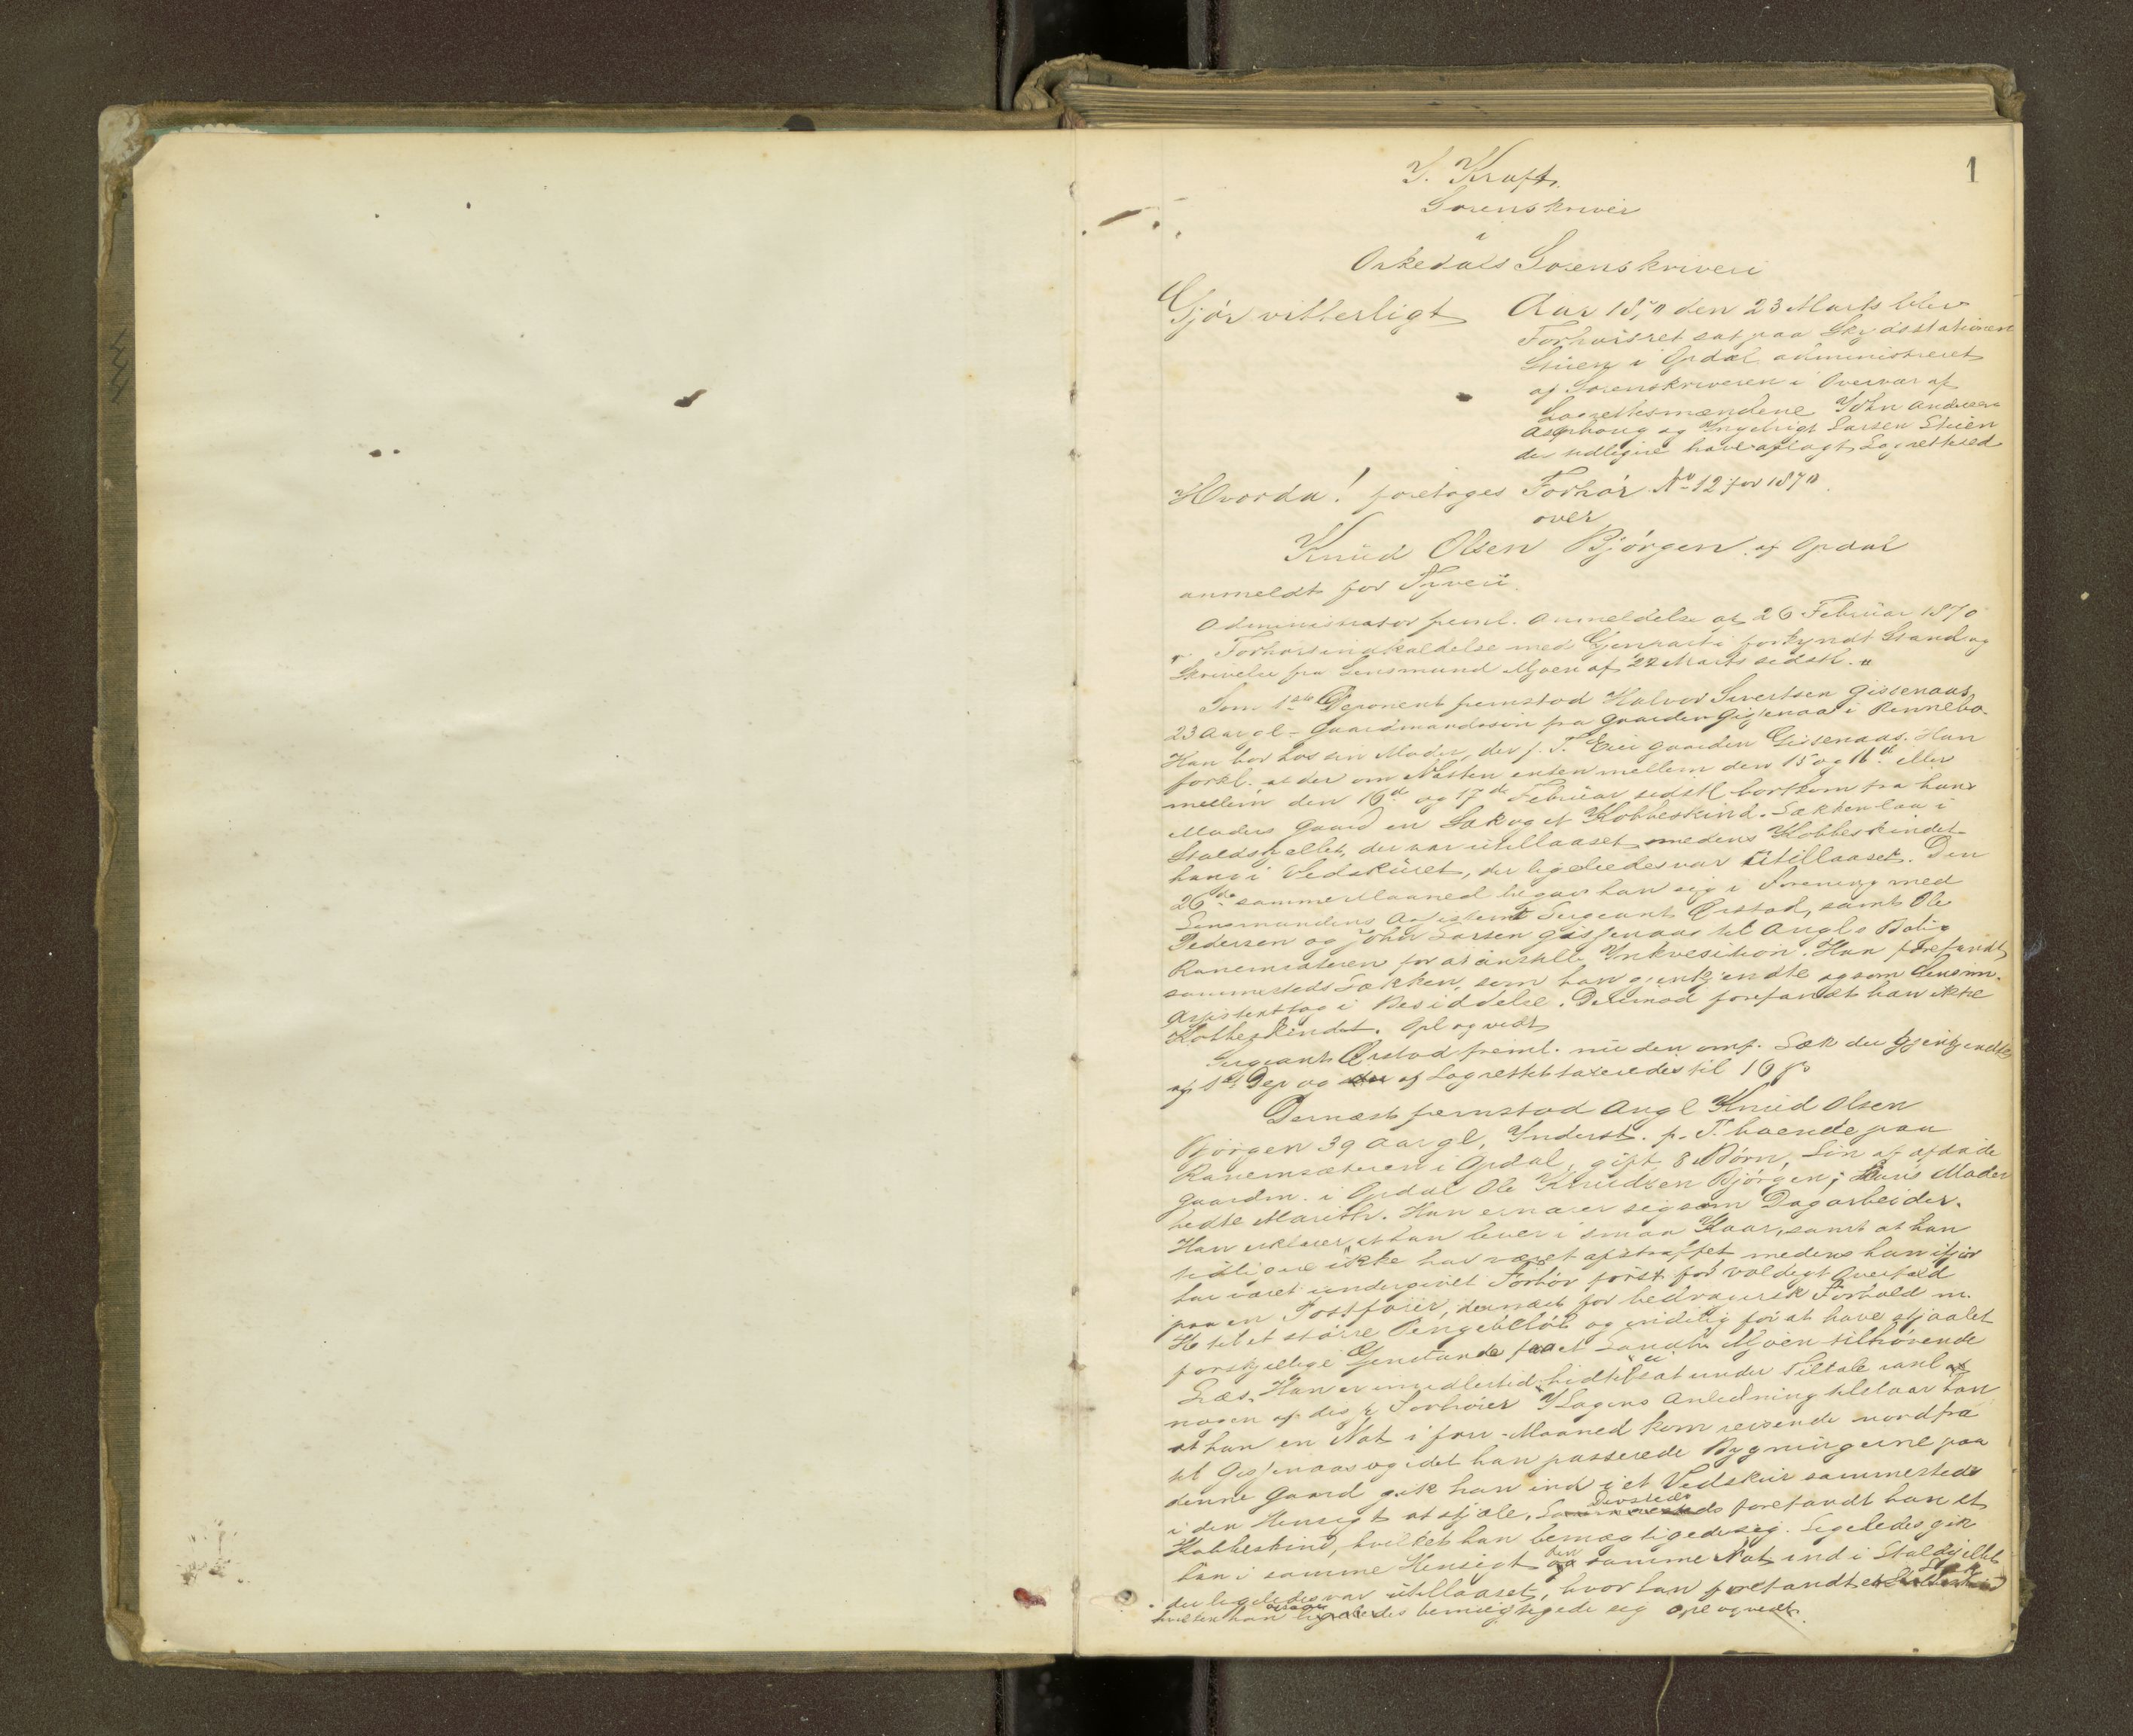 1
J. Kraft.
Sorenskriver
i
Orkedals Sorenskriveri
Gjör vitterligt Aar 1870 den 23 Marts blev
Forhörsret sat paa Skydsstationen
Stuen i Opdal administreret
af Sorenskriveren i Overvær af
Lagrettesmændene John Andersen
Asphoug og Ingebrigt Larsen Stuen
der tidligere have aflagt Lagretteed
Hvorda! foretoges Forhör No 12 for 1870.
over
Knud Olsen Björgen af Opdal
anmeldt for Tyveri.
Administrator freml. Anmeldelse af 26 Februar 1870
Forhörsindkaldelse med Gjenpart forkyndt Stand og
Skrivelse fra Lensmand Mjoen af 22 Marts sidstl.
Som 1ste Deponent fremstod Halvor Sivertsen Gissenaas
23 Aar gl. Gaardmandssön fra Gaarden Gissenaas i Rennebo.
Han bor hos sin Moder, der p. T. Eier gaarden Gissenaas. Han
forkl. at der om Natten enten mellem den 15 og 16de eller
mellem den 16de og 17de Februar sidstl bortkom fra hans
Moders Gaard en Sæk og et Kobbeskind. Sækken laa i
Staldskellet, der var utillaaset, medens Kobbeskindet
hang i Vedskuret, der ligeledes var utillaaset. Den
26de samme Maaned begav han sig i Forening med
Lensmandens Assistent Sergeant Ørstad, samt Ole
Pedersen og John Larsen Gissenaas til Angls Bolig
Ranemsæteren for at anstille Inkvisition. Han forefandt
sammesteds Sækken, som han gjenkjendte og som Lensm.
Assistent tog i Besiddelse. Derimod forefandt han ikke
Kobbeskindet. Opl og vedt
Sergeant Ørstad freml. nu den omf. Sæk der gjenkjendtes
af 1ste Dep og der af Lagrettet taxeredes til 16 s
Dernæst fremstod Angl Knud Olsen
Björgen 39 Aar gl, Inderst. p. T. boende paa
Ranemsæteren i Opdal, gift, 8 Börn, Sön af afdöde
Gaardm. i Opdal Ole Knudsen Björgen; Hans Moder
hedte Marith. Han ernærer sig som Dagarbeider.
Han erklærer, at han lever i smaa Kaar, samt at han
tidligere ikke har været afstraffet medens han ifjor
har været undergivet Forhör först for voldeligt Overfald
paa en Postförer, dernæst for bedragersk Forhold m.
H. til et större Pengebelöb og endelig for at have stjaalet
forskjellige Gjenstande fra et Landh. Mjoen tilhörende
Læs. Han er imidlertid hidtil ei sat under Tiltale
nogen af disse Forhörer. I Dagens Anledning tilstaar han
at han en Nat i forr. Maaned kom reisende nordfra
til Gissenaas og idet han passerede Bygningerne paa
denne Gaard gik han ind i et Vedskur sammesteds
i den Hensigt at stjæle. Sammesteds Dersteds forefandt han et
Kobbeskind, hvilket han bemægtigede sig. Ligeledes gik
han i samme Hensigt den samme Nat ind i Staldskjellet
der ligeledes var utillaaset, hvor han forefandt
hvilken han ligeledes bemægtigede sig Opl og vedt.